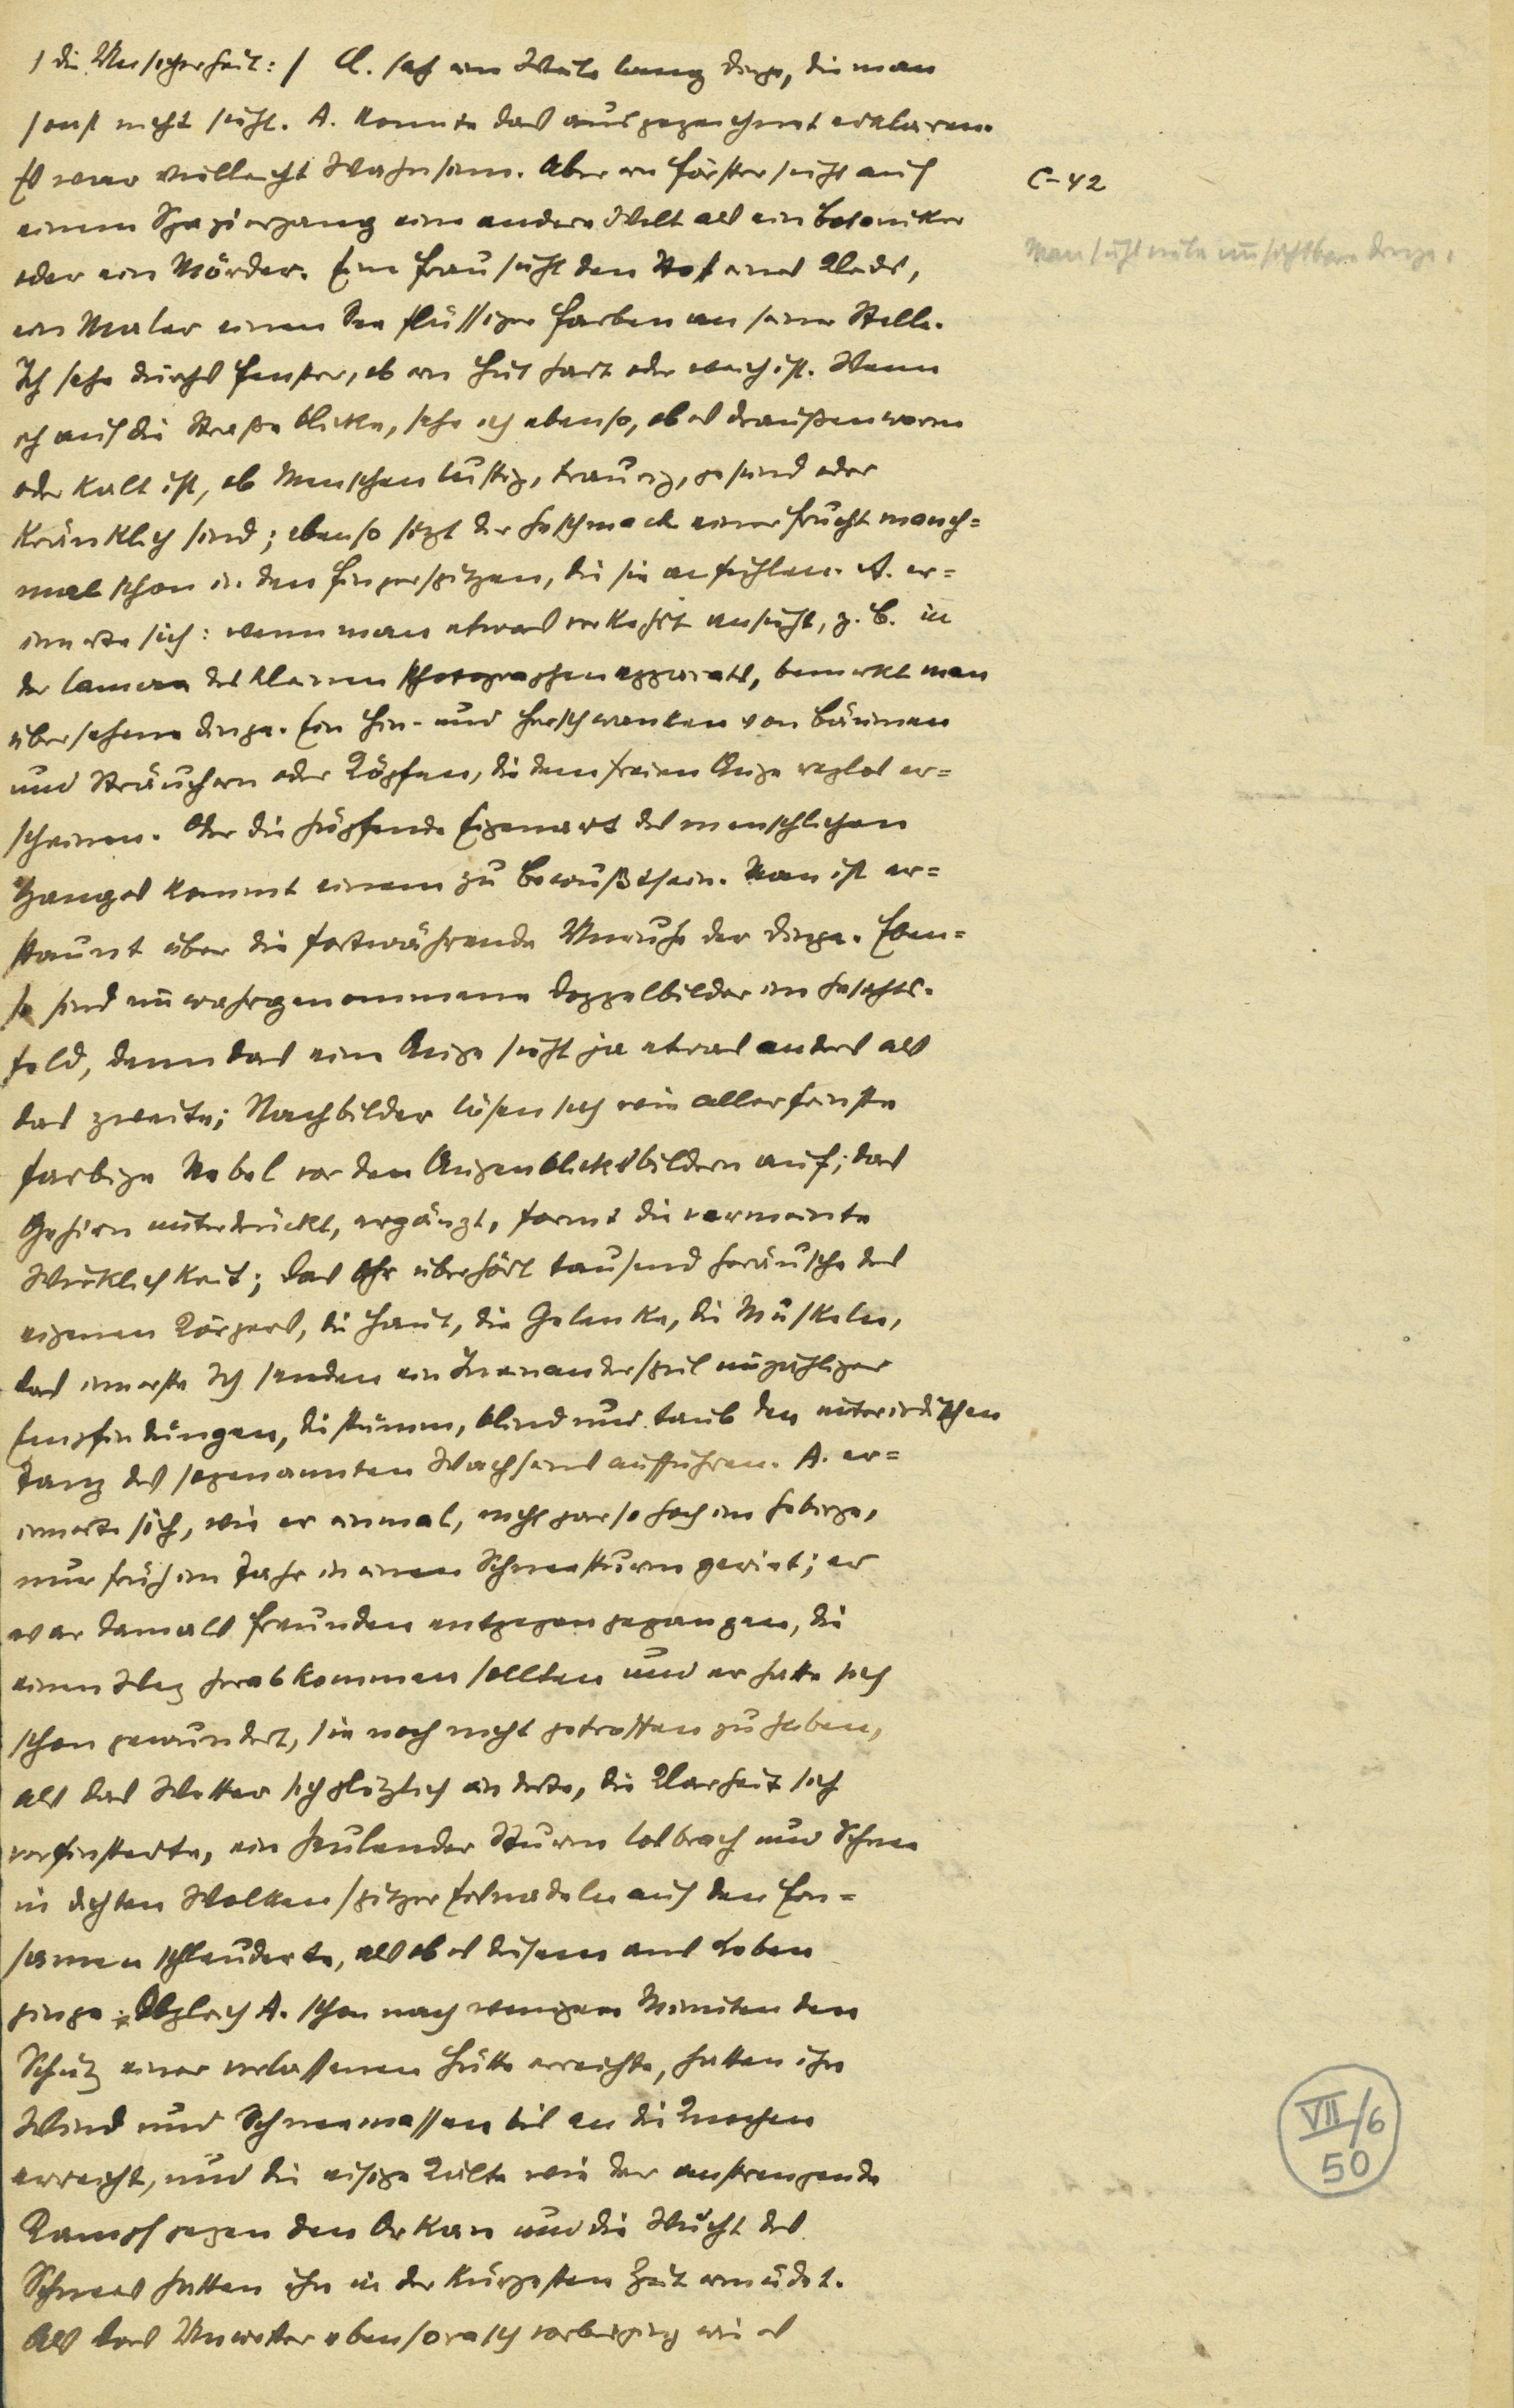 / die Unsicherheit: / A. sah eine Weile lang Dinge, die man
sonst nicht sieht. A. konnte das ausgezeichnet erklären.
Es war vielleicht Wahnsinn. Aber ein Förster sieht auf
einem Spaziergang eine andere Welt als ein Botaniker
oder ein Mörder. Eine Frau sieht den Stoff eines Kleids,
ein Maler einen See flüssiger Farben an seiner Stelle.
Ich sehe durchs Fenster, ob ein Hut hart oder weich ist. Wenn
ich auf die Straße blicke, sehe ich ebenso, ob es draußen warm
oder kalt ist, ob Menschen lustig, traurig, gesund oder
kränklich sind; ebenso sitzt der Geschmack einer Frucht manch=
mal schon in den Fingerspitzen, die sie anfühlen. A. er=
innerte sich: wenn man etwas verkehrt ansieht, z. B. in
der Camera des kleinen Photographenapparats, bemerkt man
übersehene Dinge. Ein Hin- und Herschwanken von Bäumen
und Sträuchern oder Köpfen, die dem freien Auge reglos er=
scheinen. Oder die hüpfende Eigenart des menschlichen
Ganges kommt einem zu Bewußtsein. Man ist er=
staunt über die fortwährende Unruhe der Dinge. Eben=
so sind unwahrgenommene Doppelbilder im Gesichts-
feld, denn das eine Auge sieht ja etwas anders als
das zweite; Nachbilder lösen sich wie allerfeinste
farbige Nebel vor den Augenblicksbildern auf; das
Gehirn unterdrückt, ergänzt, formt die vermeinte
Wirklichkeit; das Ohr überhört tausend Geräusche des
eigenen Körpers, die Haut, die Gelenke, die Muskeln,
das innerste Ich senden ein Ineinanderspiel unzähliger
Empfindungen, die stumm, blind und taub den unterirdischen
Tanz des sogenannten Wachseins aufführen. A. er=
innerte sich, wie er einmal, nicht gar so hoch im Gebirge,
nur früh im Jahr in einen Schneesturm geriet; er
war damals Freunden entgegengegangen, die
einen Weg herabkommen sollten und er hatte sich
schon gewundert, sie noch nicht getroffen zu haben,
als das Wetter sich plötzlich änderte, die Klarheit sich
verfinsterte, ein heulender Sturm losbrach und Schnee
in dichten Wolken spitzer Eisnadeln auf den Ein=
samen schleuderte, als ob es diesem ans Leben
ginge. Obgleich A. schon nach wenigen Minuten den
Schutz einer verlassenen Hütte erreichte, hatten ihn
Wind und Schneemassen bis an die Knochen
erreicht, und die eisige Kälte wie der anstrengende
Kampf gegen den Orkan und die Wucht des
Schnees hatten ihn in der kürzesten Zeit ermüdet.
Als das Unwetter ebenso rasch vorbeiging wie es
C-42
Man sieht viele unsichtbare Dinge.
VII/6
50